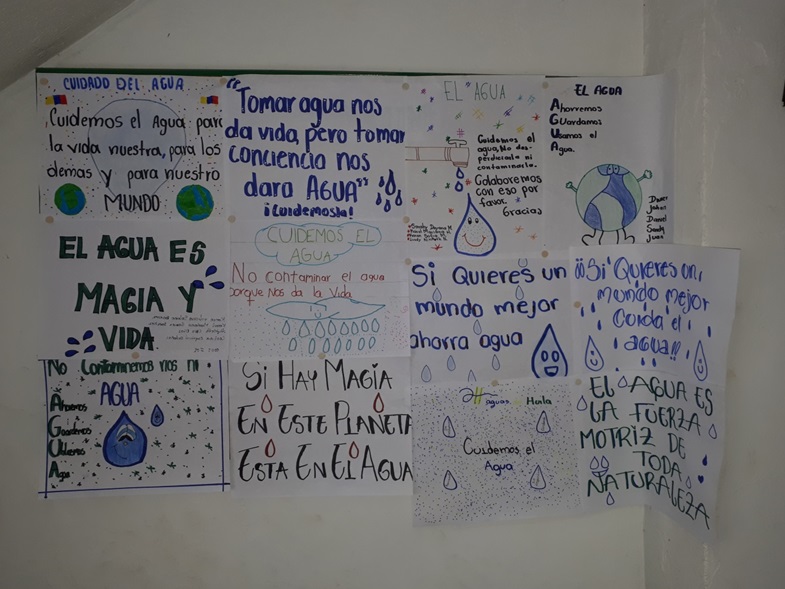 CUIDADO DEL AGUA
Cuidemos el Agua para
la vida nuestra, para los
demas y para nuestro
MUNDO
"Tomar agua nos
da vida, pero tomar
conciencia nos
dara AGUA"
¡Cuidemosla!
EL AGUA
Cuidemos el
agua, No des-
perdiciarla ni
contaminarla.
Colaboremos
con eso por
favor.
Gracias
EL AGUA
Ahorremos
GUardamos
Usamos el
Agua.
Daniel
Sandy
Juan
EL AGUA ES
MAGIA Y
VIDA
CUIDEMOS EL
AGUA
No contaminar el agua
porque Nos da la Vida
Si Quieres un
mundo mejor
ahorra agua
¡¡Si Quieres un
mundo mejor
Cuida el
agua!!
No Contaminemos rios ni
AGUA
Ahorremos
Guardemos
Utilicemos
Agua
Si HAY MAGIA
EN ESTE PLANETA
ESTA EN El AGUA
aguas Huila
Cuidemos el
Agua
EL AGUA ES
LA FUERZA
MOTRIZ DE
TODA
NATURALEZA